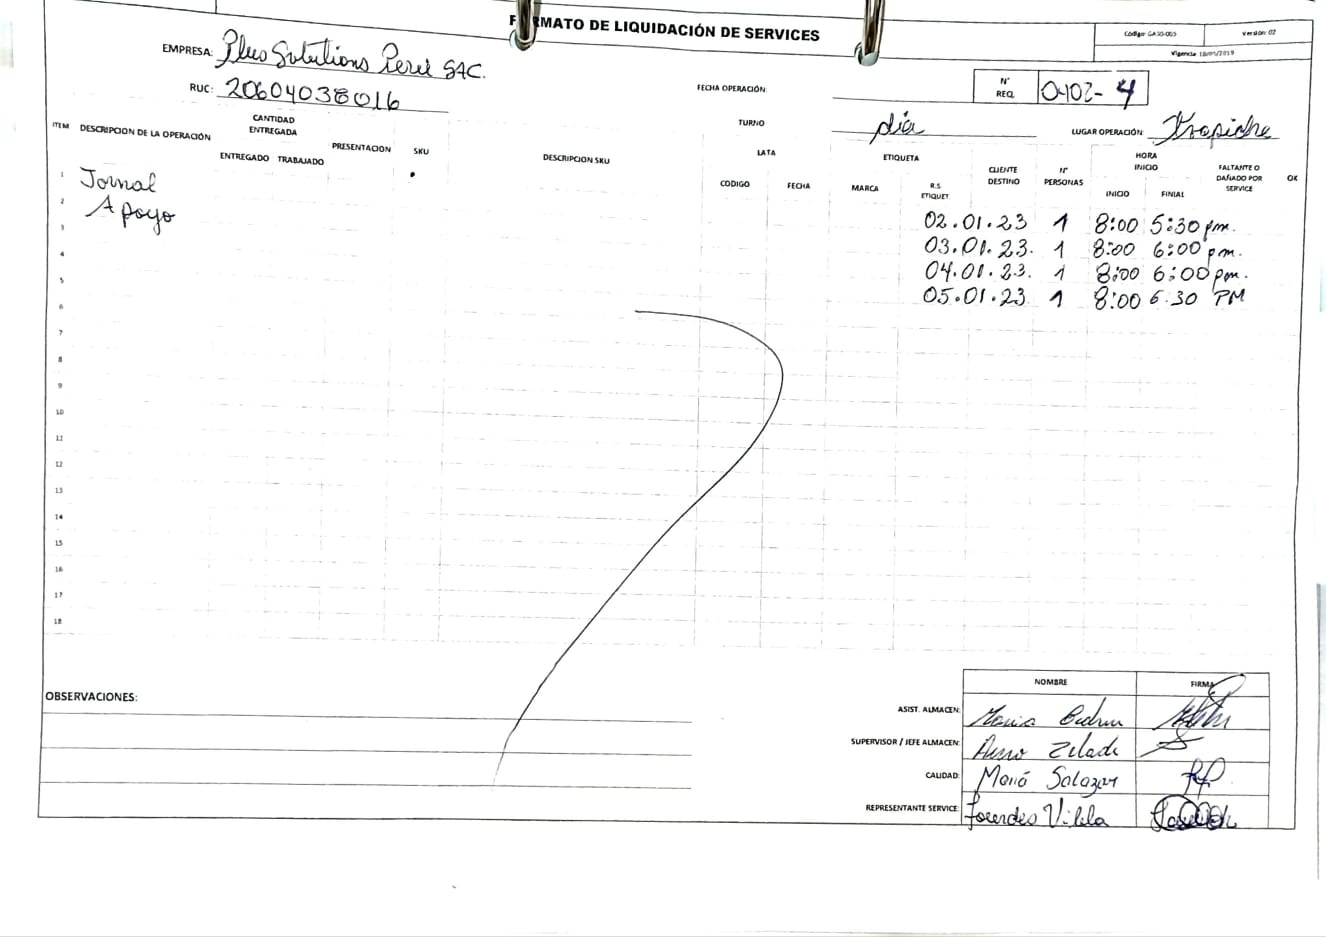 FORMATO DE LIQUIDACIÓN DE SERVICES
Código: GA30-003 Versión: 02
Vigencia 18/01/2019
EMPRESA: Plus Solutions Perú SAC.
RUC: 20604038016
FECHA OPERACIÓN:
N° REQ. 0402-4
TURNO día
LUGAR OPERACIÓN: Trapiche
ITEM DESCRIPCION DE LA OPERACIÓN CANTIDAD ENTREGADA PRESENTACION SKU DESCRIPCION SKU LATA ETIQUETA CLIENTE DESTINO N° PERSONAS HORA INICIO FALTANTE O DAÑADO POR SERVICE OK
ENTREGADO TRABAJADO CODIGO FECHA MARCA R.S ETIQUET INICIO FINIAL
1 Jornal
2 Apoyo
02.01.23 1 8:00 5:30 pm.
3 03.01.23. 1 8:00 6:00 pm.
4 04.01.23. 1 8:00 6:00 pm.
5 05.01.23 1 8:00 6.30 PM
6
7
8
9
10
11
12
13
14
15
16
17
18
OBSERVACIONES:
NOMBRE FIRMA
ASIST. ALMACEN:
SUPERVISOR / JEFE ALMACEN:
CALIDAD: Salazar
REPRESENTANTE SERVICE: Lourdes Vilela